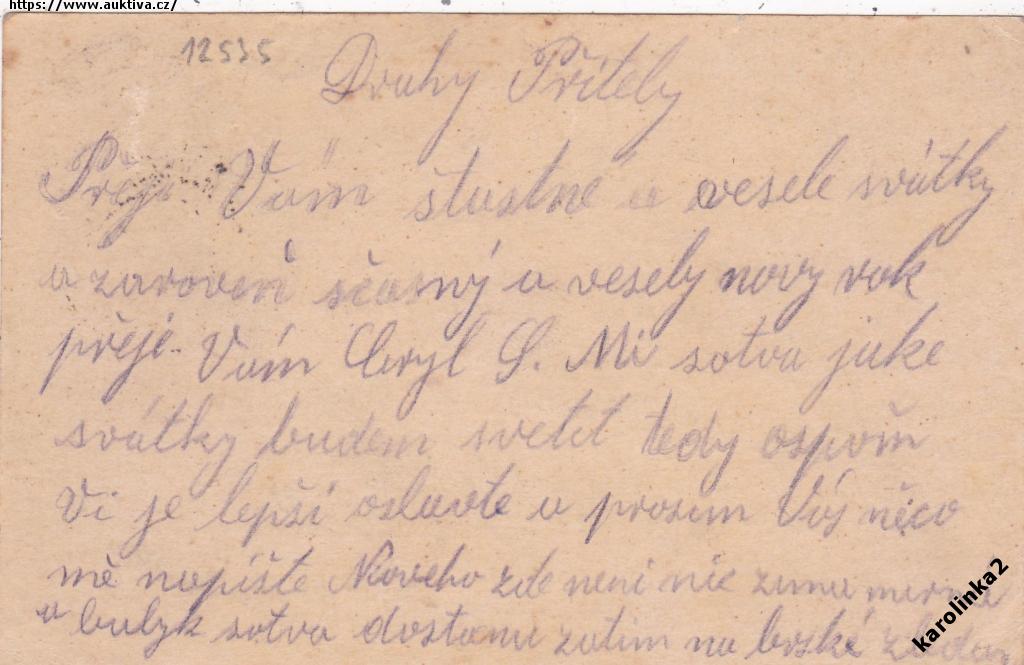 https://www.auktiva.cz/
12535
Druhy Přítely
Přeji Vám štastné a vesele svátky
a zaroveň ščasný a vesely novy rok
přeje Vám Ciryl S. Mi sotva jake
svátky budem svetit tedy ospoň
Vi je lepší oslavte a prosim Vás něco
mě napište Noveho zde neni nic zima
a sotva dostanu zatim na
karolinka2